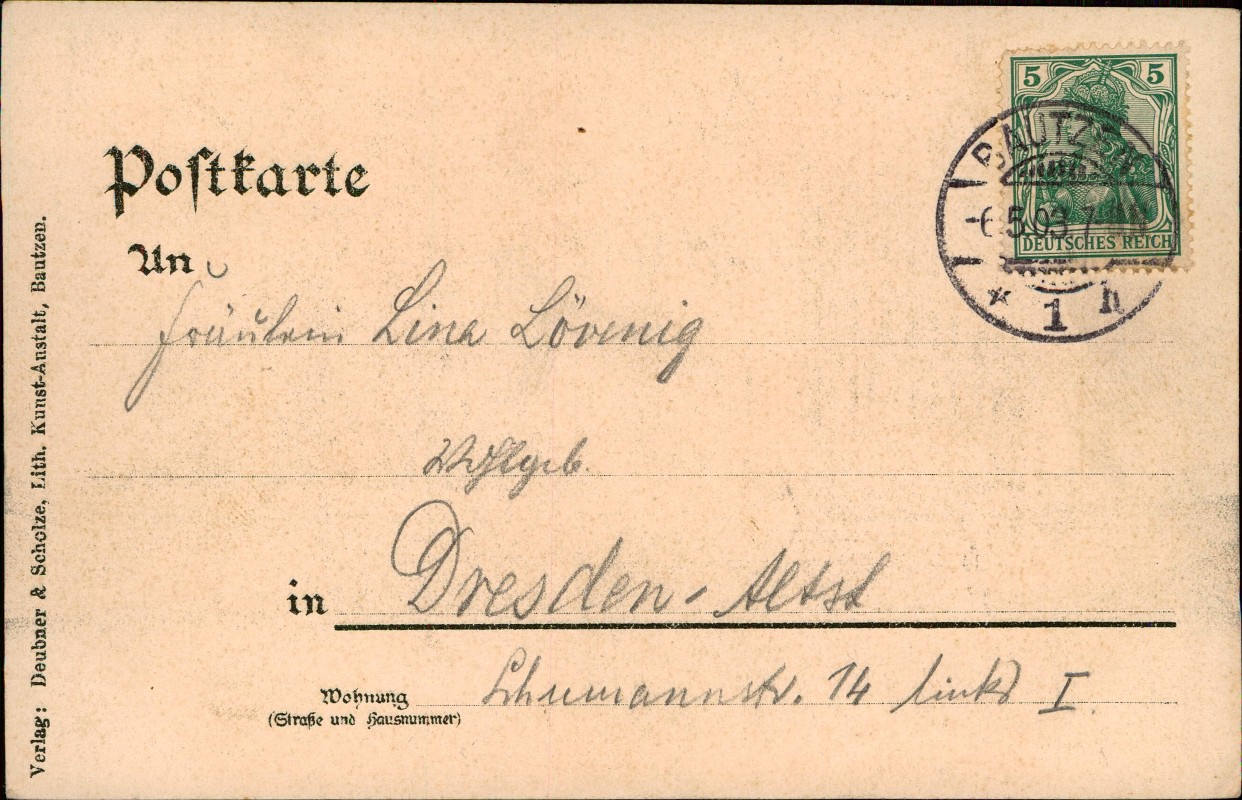 Postkarte
5 5
BAUTZEN
-6.5.03.7-8N
* 1 h
DEUTSCHES REICH
An
Fräulein Lina Lövenig
Wohlgeb.
in Dresden-Altst
Wohnung Schumannstr. 14 links I.
(Straße und Hausnummer)
Verlag: Deubner & Scholze, Lith. Kunst-Anstalt, Bautzen.